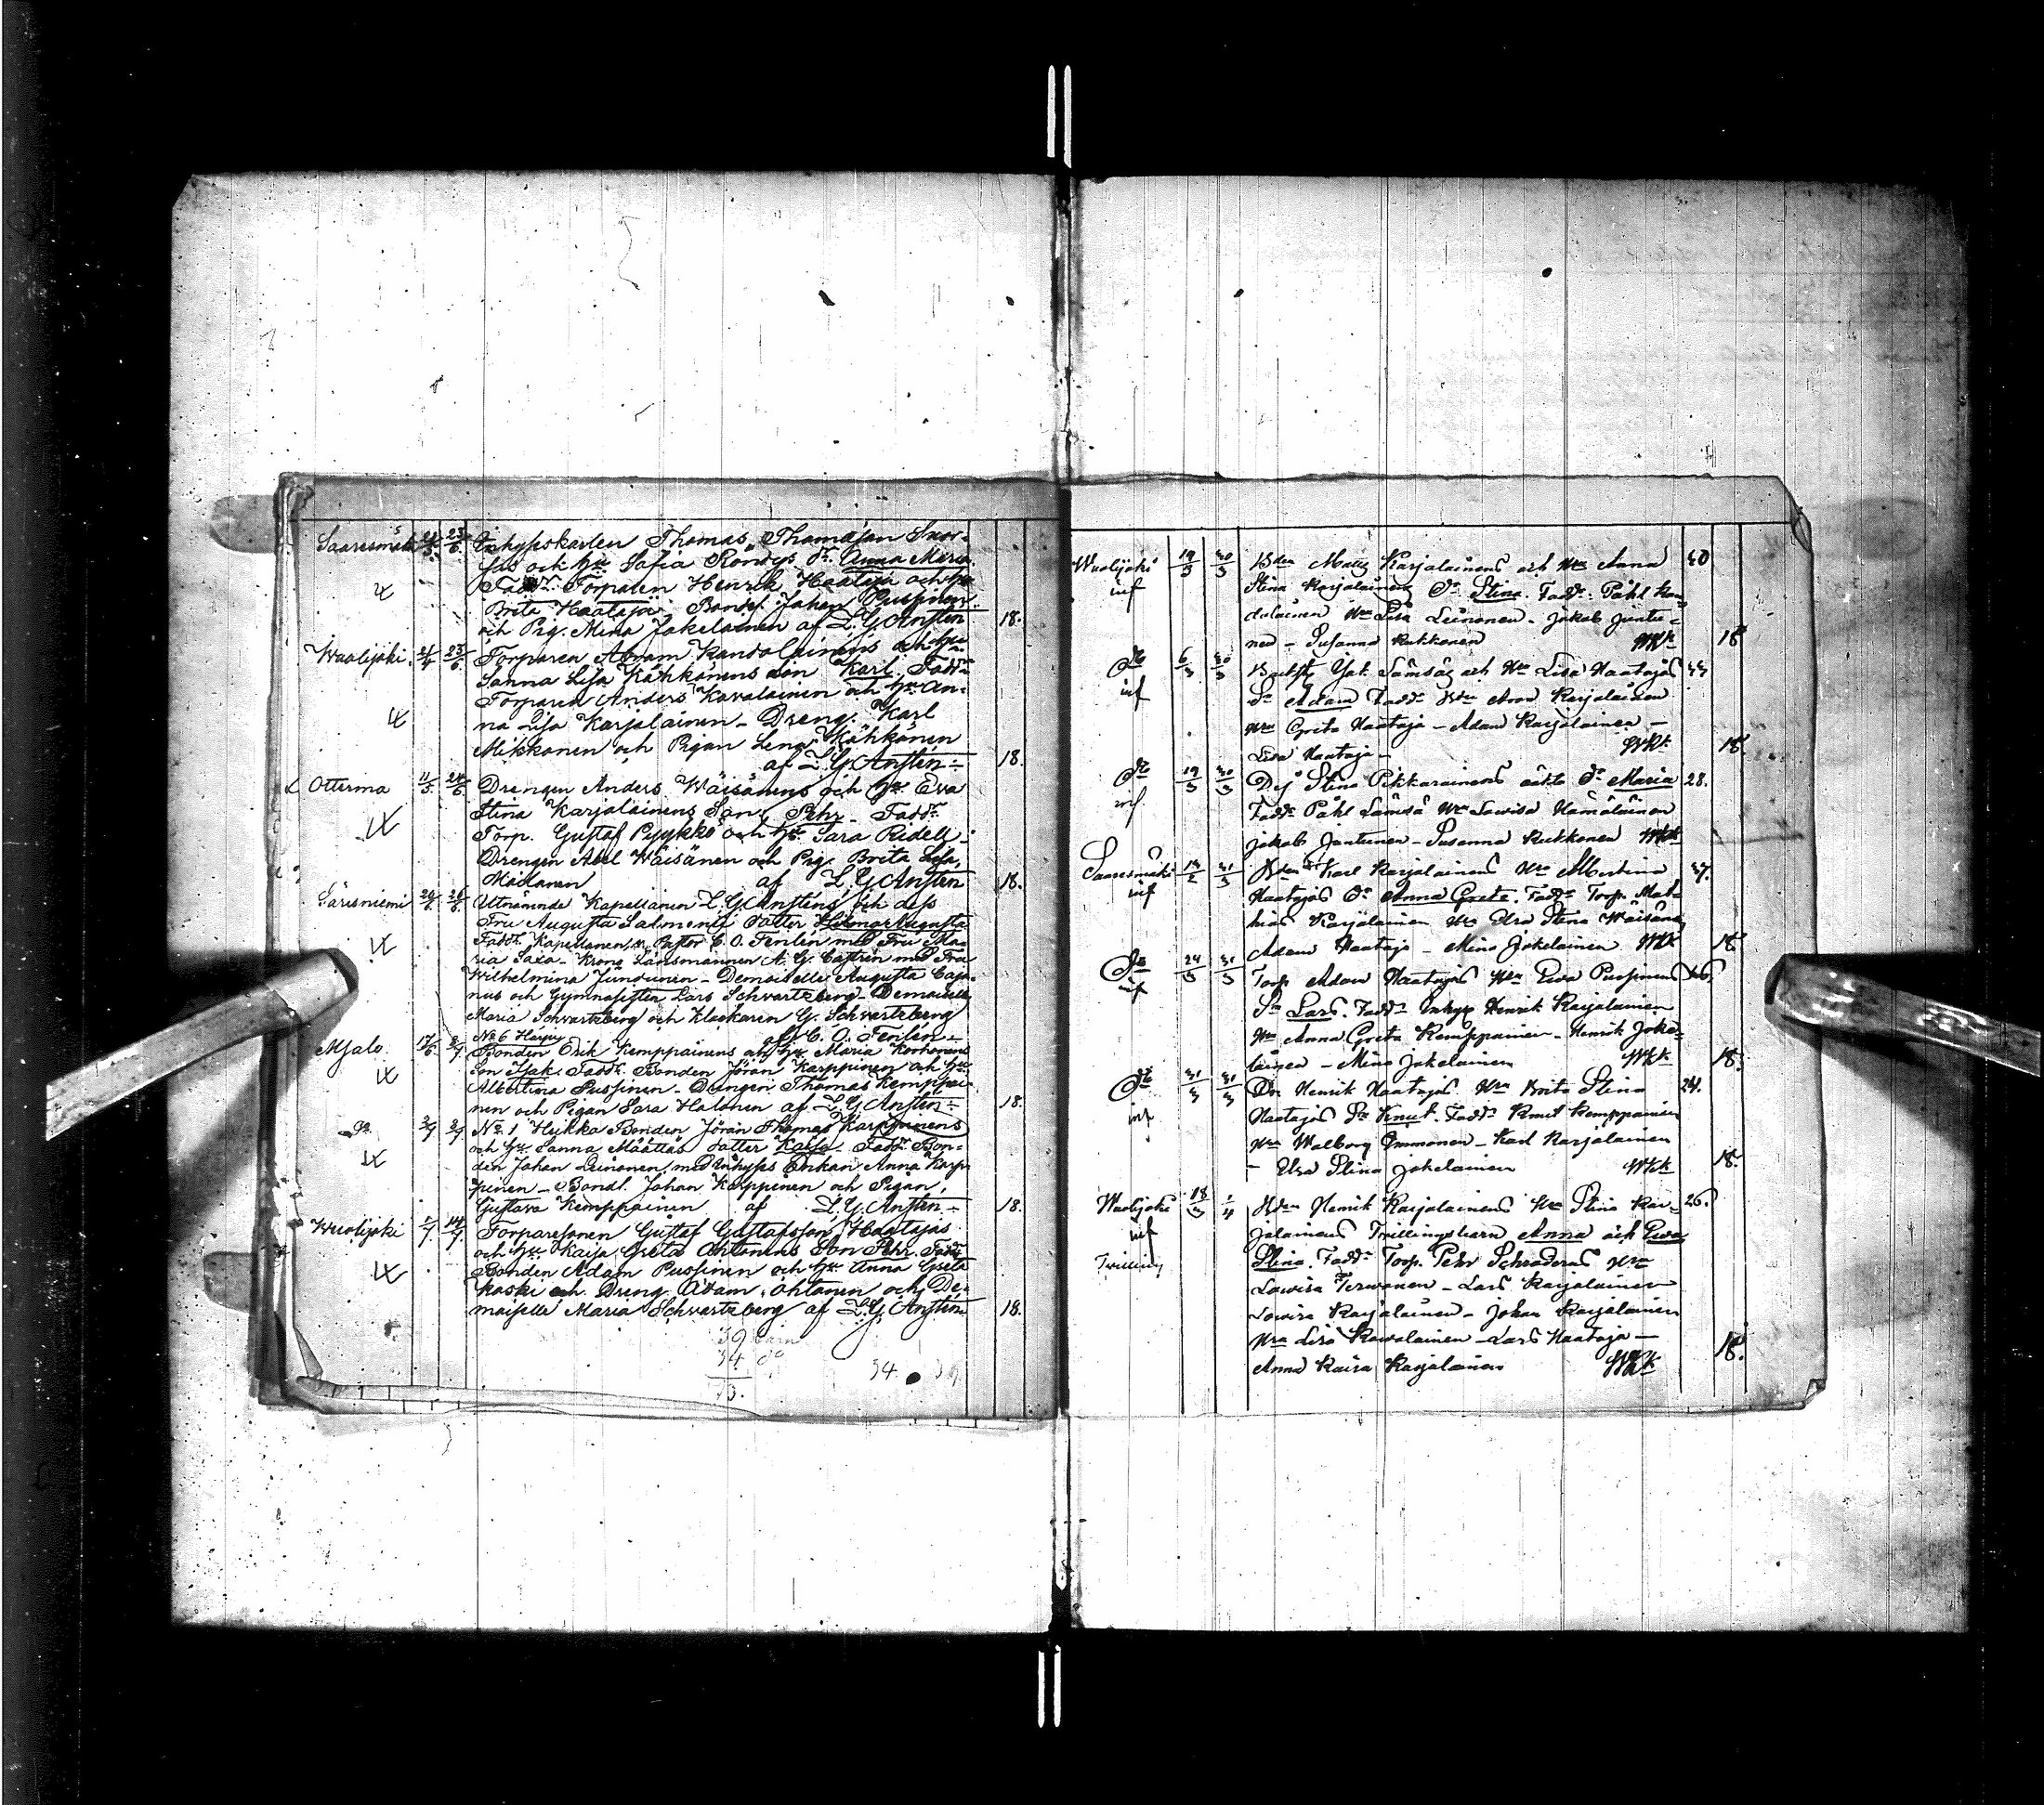 Saaresmäki 21/5 23/6 Inhyseskarlen Thomas Thomasson Snor-
jas och hu Sofia Rondys dr. Anna Maria
Faddr. Torparen Henrik Haataja och hu
Brita Haataja Bondes. Johan Pussinen
och Pig. Mina Jokelainen af L. G. Ansten 18.
Wuolijoki 21/4 23/6 Torparen Abram Kandolainens och hu
Sanna Lisa Kähkönens son Karl. Faddr
Torparen Anders Kavalainen och hu An-
na Lisa Karjalainen - Dreng. Karl
Mikkonen och Pigan Lena Kähkönen
af L. G. Ansten 18.
Otterma 11/5 24/6 Drengen Anders Wäisänens och hu Eva
Stina Karjalainens Son Pehr Faddr.
Torp. Gustaf Pyykkö och hu Sara Ridell
Drengen Abel Wäisänen och Pig. Brita Lisa
af L. G. Ansten 18.
Säresniemi 26/6 Utnämnde Kapellanen L. G. Anstens och dess
Fru Augusta Salmenii dotter Augusta
Faddr. Kapellanen, v. Pastor C. O. Fenlin med Fru Ma-
ria - Krono Länsmannen A. G. Castrén med Fru
Wilhelmina - Demoiselle Augusta Caja-
nus och Gymnasisten Lars Schvartzberg - Demoiselle
Maria Schvartzberg och Klockaren G. Schvartzberg
af C. O. Fenlin
No 6
Mjalo 17/6 2/7 Bonden Erik Kemppainens och hu Maria Korhonens
Son Isak. Faddr. Bonden Jöran Karppinen och hu
Albertina Pussinen - Drengen Thomas Kemppai-
nen och Pigan Sara Halonen af L. G. Ansten 18.
Do 2/7 2/7 No 1 Hukka Bonden Jöran Thomas Karppinens
och hu Sanna Määttäs dotter Kajsa Faddr. Bon-
den Johan Leinonen med Inhyses Enkan Anna Karp-
pinen - Bondl. Johan Karppinen och Pigan
Gustava Kemppainen af L. G. Ansten 18.
Wuolijoki 1/7 14/7 Torparesonen Gustaf Gustafsson Haatajas
och hu Kaisa Greta Ahtonens Son Pehr. Faddr
Bonden Adam Pussinen och hu Anna Greta
Koski och Dreng. Adam Ahtonen och De-
moiselle Maria Schvartzberg af L. G. Ansten 18.
39 barn
34 do
73.
34 39
Wuolijoki 19/3 30/3 Bden Matts Karjalainens och Hu Anna 40
inf Stina Karjalainens Dr Stina. Faddr. Påhl Kan-
dolainen Hu Lisa Leinonen - Jakob Juntu-
nen - Susanna Kukkonen 18
Do 6/3 30/3 Backst. Jak. Lämsäs och Hu Lisa Haatajas
inf Sn Adam Faddr Bden Aron Karjalainen
Hu Greta Haataja - Adam Karjalainen -
Lisa Haataja - 18
Do 19/3 30/3 Dej Stina Pikkarainens oäkta Dr Maria 28.
inf. Faddr Påhl Lämsä Hu Lowisa Hämäläinen
Jakob Juntunen - Susanna Kukkonen
Saaresmäki 31/3 Bden Karl Karjalainens Hu Albertina 37.
inf Haatajas Dr Anna Greta. Faddr Torp. Mat-
thias Karjalainen Hu Elsa Stina Wäisänen
Adam Haataja - Mina Jokelainen 18
Do 24/3 31/3 Torp Adam Haatajas Hu Ewa Pussinens
inf Sn Lars. Faddr Inhys Henrik Karjalainen
Hu Anna Greta Kemppainen - Henrik Joke-
lainen - Mina Jokelainen 18.
Do 31/3 31/3 Dr. Henrik Haatajas Hu Brita Stina 24.
inf Haatajas Sn Knut. Faddr Knut Kemppainen
Hu Walborg Immonen - Karl Karjalainen
- Elsa Stina Jokelainen 18.
Wuolijoki 18/3 1/4 Bden Henrik Karjalainens Hu Stina Kar- 26.
inf jalainens Tvillingsbarn Anna och Ewa
Tvilling Stina. Faddr. Torp. Pehr Schroderus Hu
Lowisa Terwonen - Lars Karjalainen
Lowisa Karjalainen - Johan Karjalainen
Hu Lisa Kawalainen - Lars Haataja -
Anna Kaisa Karjalainen 18.